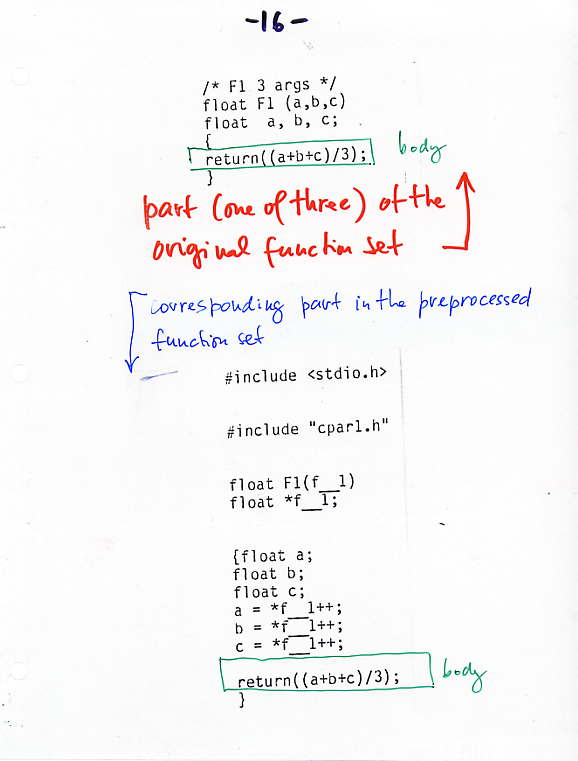 -16-
/* F1 3 args */
float F1 (a,b,c)
float a, b, c;
{
return((a+b+c)/3);
body
}
part (one of three) of the
original function set
corresponding part in the preprocessed
function set
#include <stdio.h>
#include "cparl.h"
float F1(f__1)
float *f__1;
{float a;
float b;
float c;
a = *f__1++;
b = *f__1++;
c = *f__1++;
return((a+b+c)/3);
body
}